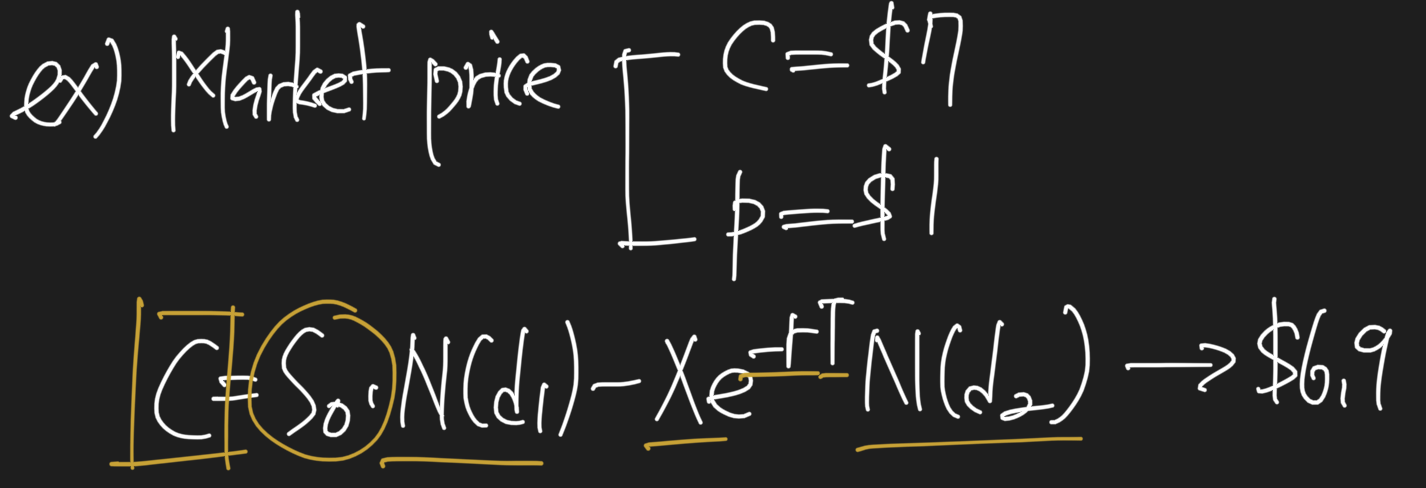 ex) Market price [ C = $7
p = $1
C = S₀·N(d₁) - Xe^-rT N(d₂) → $6.9